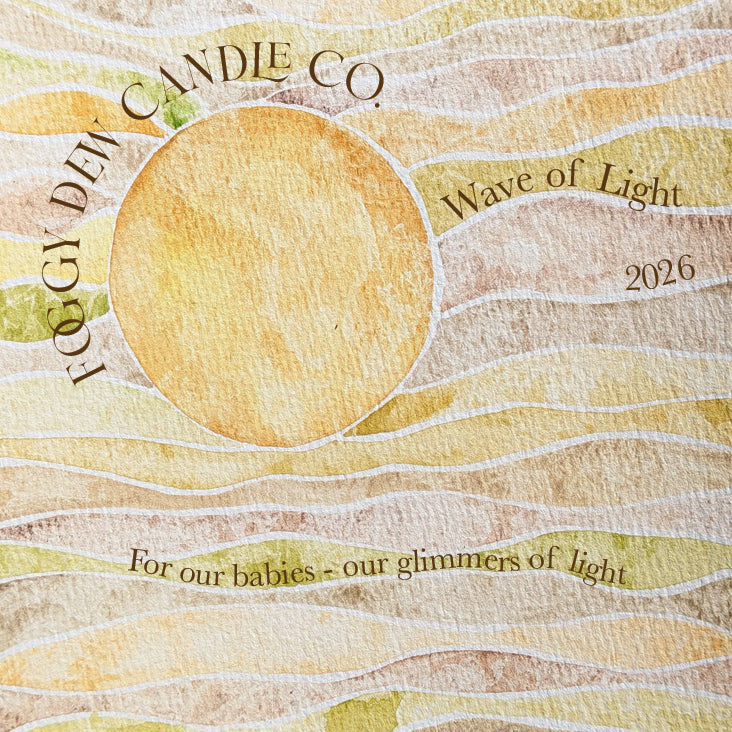 FOGGY DEW CANDLE CO.
Wave of Light
2026
For our babies - our glimmers of light